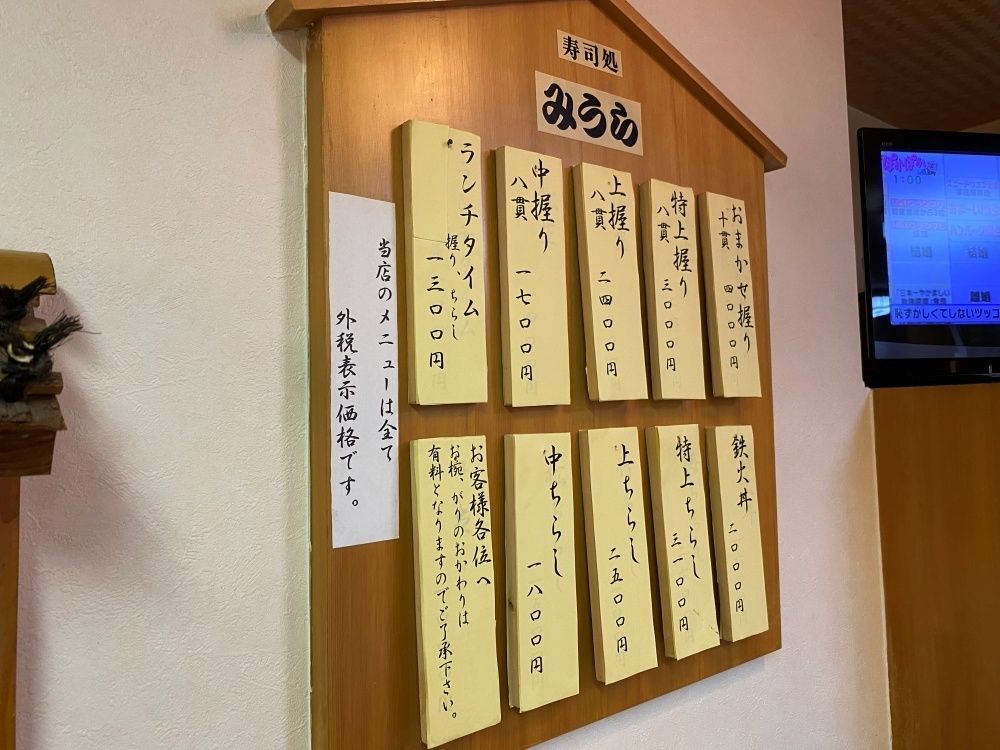 寿司処
みうら
おまかせ握り
十貫 四〇〇〇円
特上握り
八貫 三〇〇〇円
上握り
八貫 二四〇〇円
中握り
八貫 一七〇〇円
ランチタイム
握り、ちらし
一三〇〇円
鉄火丼 二〇〇〇円
特上ちらし 三一〇〇円
上ちらし 二五〇〇円
中ちらし 一八〇〇円
お客様各位へ
お椀、がりのおかわりは
有料となりますのでご了承下さい。
当店のメニューは全て
外税表示価格です。
1:00
離婚
恥ずかしくてしないツッコ